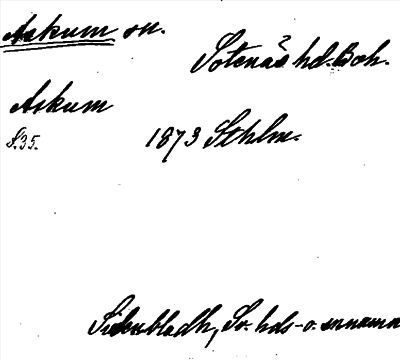 Askum sn.
Sotenäs hd. Boh.
Askum
S.35.
1873 Sthlm.
Sidenbladh, Sv. hds- o. snnamn